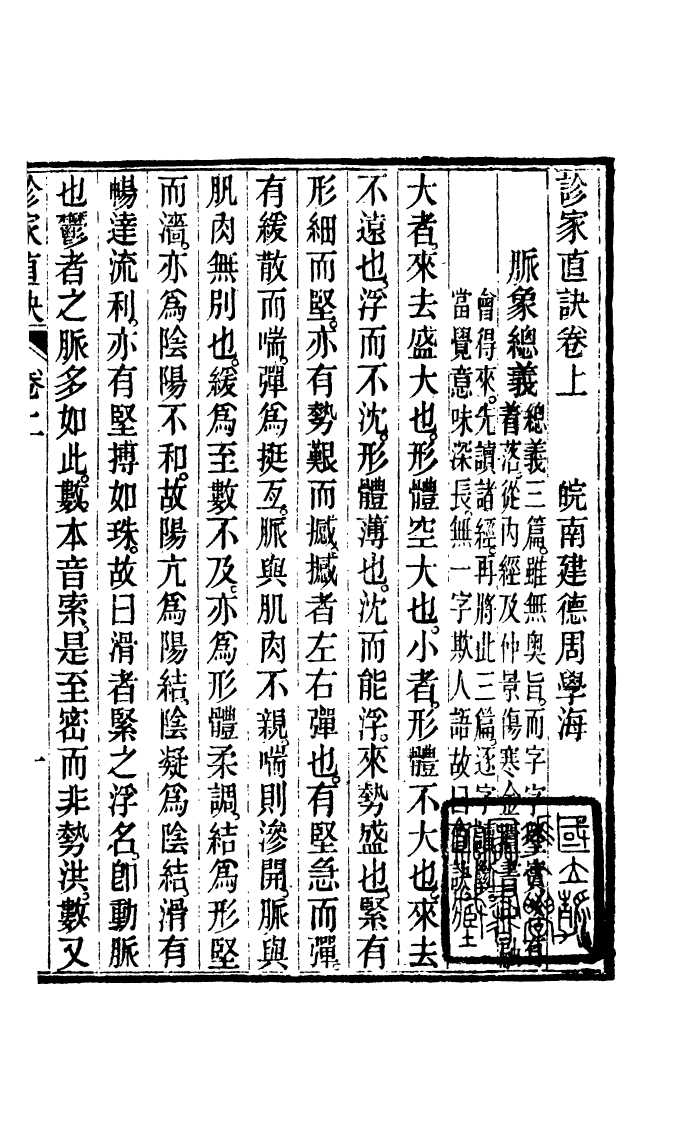 診家直訣卷上　皖南建德周學海
脈象總義
總義三篇。雖無奧旨。而字字
著落。從內經及仲景傷寒金
會得來。先讀諸經。再將此三篇。逐字
當覺意味深長。無一字欺人語。故曰
大者。來去盛大也。形體空大也。小者。形體不大也。來去
不遠也。浮而不沈。形體薄也。沈而能浮。來勢盛也。緊有
形細而堅。亦有勢艱而撼。撼者左右彈也。有堅急而彈。
有緩散而喘。彈為挺亙。脈與肌肉不親。喘則滲開。脈與
肌肉無別也。緩為至數不及。亦為形體柔調。結為形堅
而濇。亦為陰陽不和。故陽亢為陽結。陰凝為陰結。滑有
暢達流利。亦有堅搏如珠。故曰滑者緊之浮名。即動脈
也。鬱者之脈多如此。數。本音索。是至密而非勢洪。數又
診家直訣　卷上　一